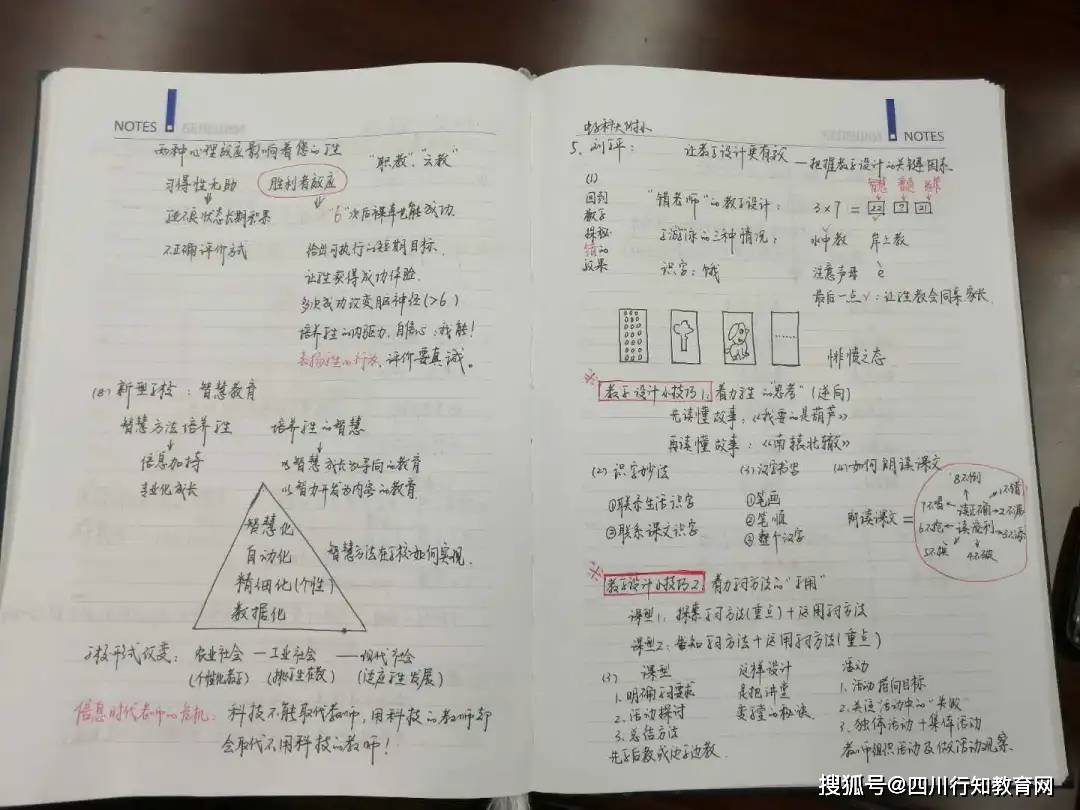 NOTES
两种心理效应影响着您的学生
"职教"、"元教"
习得性无助 胜利者效应
不良状态长期积累 "6"次后跳伞也能成功.
不正确评价方式 给出可执行的短期目标.
让学生获得成功体验.
多次成功改变脑神经(>6)
培养学生的内驱力,自信心:我能!
表扬学生的行为,评价要真诚。
新型学校:智慧教育
智慧方法培养学生 培养学生的智慧
信息加持 以智慧成长为导向的教育
专业化成长 以智力开发为内容的教育
智慧化
自动化
精细化(个性)
数据化
智慧方法在学校如何实现.
学校形式改变: 农业社会 — 工业社会 — 现代社会
(个性化教学) (班级教) (适应学生发展)
信息时代教师的危机: 科技不能取代教师,用科技的教师却
会取代不用科技的教师!
NOTES
电子科大附小
5. 刘 : 让教学设计更有效
—把握教学设计的关键因素
(1)
回到
教学
探秘
错的
效果
"错老师"的教学设计: 3×7 = 22 ? 21
学游泳的三种情况: 水中教 岸上教
识字:饿 注意声母 e
最后一点√:让学生教会同桌、家长.
悱愤之态
※ 教学设计小技巧1: 着力学生"思考"(逆向)
先读懂故事:《我要的是葫芦》
再读懂故事:《南辕北辙》
(2) 识字妙法 (3) 汉字书写 (4) 如何朗读课文
①联系生活识字 ①笔画
②联系课文识字 ②笔顺
③整个汉字
朗读课文 =
8不倒
7不唱 读正确 1不错
2不漏
6不抢 读流利 3不添
4不破
※ 教学设计小技巧2: 着力学习方法的"学用"
课型1:探索学习方法(重点)+运用学习方法
课型2:告知学习方法+运用学习方法(重点)
课型 这样设计 活动
1. 明确学习要求 是把讲堂 1. 活动指向目标
2. 活动探讨 变学堂的秘诀. 2. 关注"活动中的"失败"
3. 总结方法 3. 独体活动+集体活动
先学后教或边学边教. 教师组织活动及做活动观察.
搜狐号@四川行知教育网